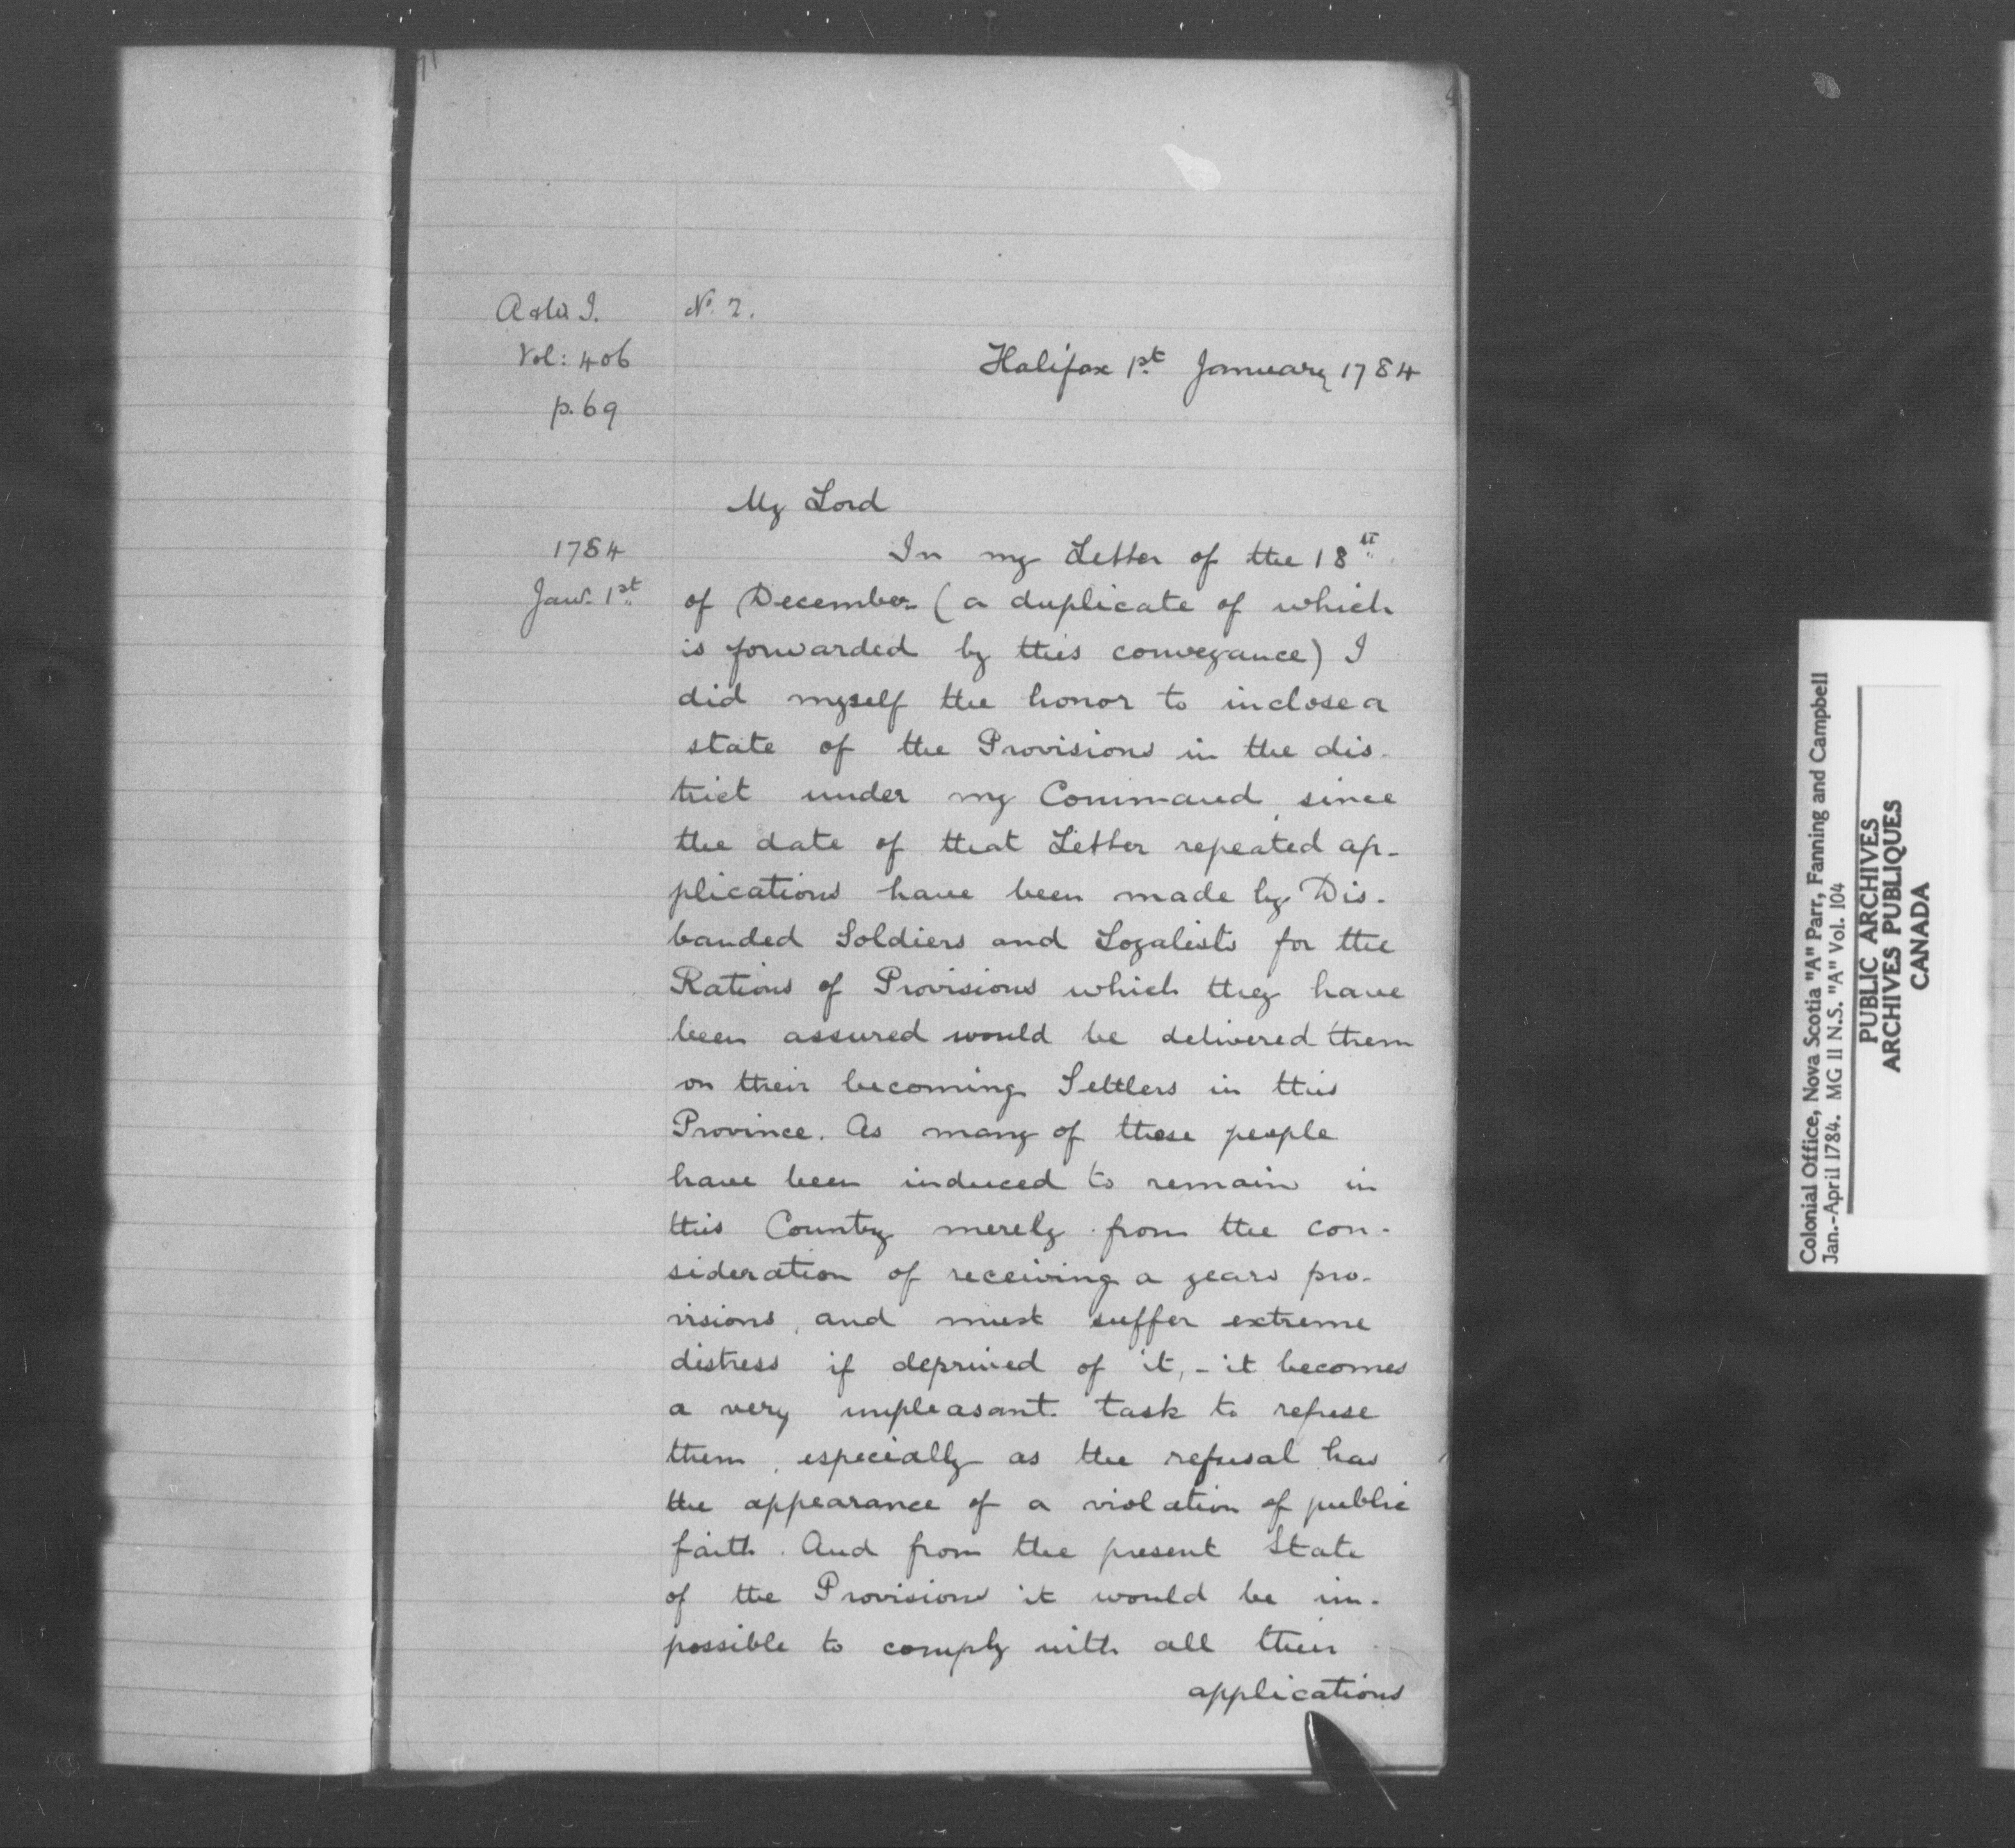 A & W I.
Vol: 406
p. 69
No. 2.
Halifax 1st January 1784
My Lord
1784
Jan. 1st
In my Letter of the 18th
of December (a duplicate of which
is forwarded by this conveyance) I
did myself the honor to inclose a
state of the Provisions in the dis-
trict under my Command, since
the date of that Letter repeated ap-
plications have been made by Dis-
banded Soldiers and Loyalists for the
Rations of Provisions which they have
been assured would be delivered them
on their becoming Settlers in this
Province. As many of these people
have been induced to remain in
this Country merely from the con-
sideration of receiving a years pro-
visions, and must suffer extreme
distress if deprived of it, - it becomes
a very unpleasant task to refuse
them, especially as the refusal has
the appearance of a violation of public
faith. And from the present State
of the Provisions it would be im-
possible to comply with all their
applications
Colonial Office, Nova Scotia "A" Parr, Fanning and Campbell
Jan.-April 1784. MG 11 N.S. "A" Vol. 104
PUBLIC ARCHIVES
ARCHIVES PUBLIQUES
CANADA